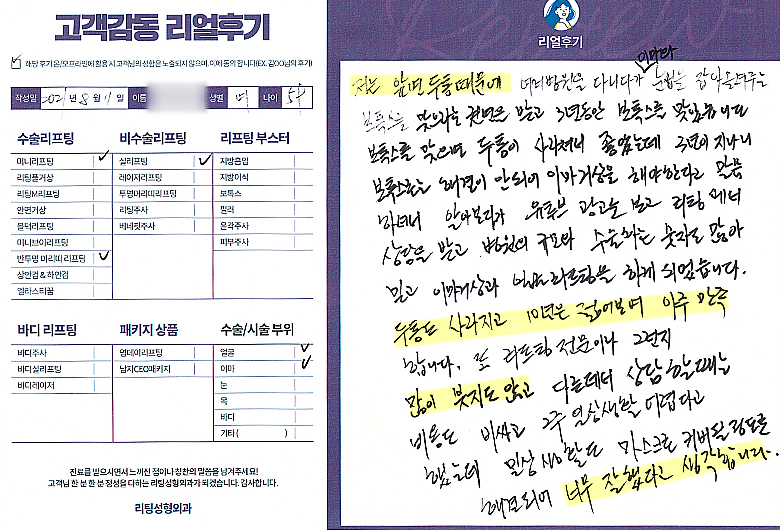 고객감동 리얼후기
해당 후기 온/오프라인에 활용 시 고객님의 성함은 노출되지 않으며, 이에 동의 합니다(EX. 김OO님의 후기)
작성일 2021년 8월 11일 이름 성별 여 나이
수술리프팅
미니리프팅 ✓
리팅풀거상
리팅M리프팅
안면거상
뭉텅리프팅
미니브이리프팅
반투명 머리띠 리프팅 ✓
상안검 & 하안검
엘라스티꿈
비수술리프팅
실리프팅 ✓
레이저리프팅
투명머리띠리프팅
리팅주사
베네핏주사
리프팅 부스터
지방흡입
지방이식
보톡스
필러
윤곽주사
피부주사
바디 리프팅
바디주사
바디실리프팅
바디레이저
패키지 상품
영데이리프팅
남자CEO패키지
수술/시술 부위
얼굴 ✓
이마 ✓
눈
목
바디
기타( )
진료를 받으시면서 느끼신 점이나 칭찬의 말씀을 남겨주세요!
고객님 한 분 한 분 정성을 다하는 리팅성형외과가 되겠습니다. 감사합니다.
리팅성형외과
Review
리얼후기
저는 앞면 두통때문에 여러병원을 다니다가 눈썹을
보톡스를 맞으라는 권면을 받고 3년동안 보톡스를 맞았습니다
보톡스를 맞으면 두통이 사라져서 좋았는데 3년이 지나니
보톡스로는 해결이 안되어 이마거상을 해야한다고 말씀
하셔서 알아보다가 유튜브 광고를 보고 리팅에서
상담을 받고 병원의 규모와 수술하는 숫자도 많아
믿고 이마거상과 얼굴리프팅을 하게 되었습니다.
두통도 사라지고 10년은 젊어보여 아주 만족
합니다. 또 리프팅 전문이라 그런지
많이 붓지도 않고 다른데서 상담할때는
비용도 비싸고 2주 일상생활 어렵다고
했는데 일상생활도 마스크로 커버될 정도로
해결되어 너무 잘했다고 생각합니다.